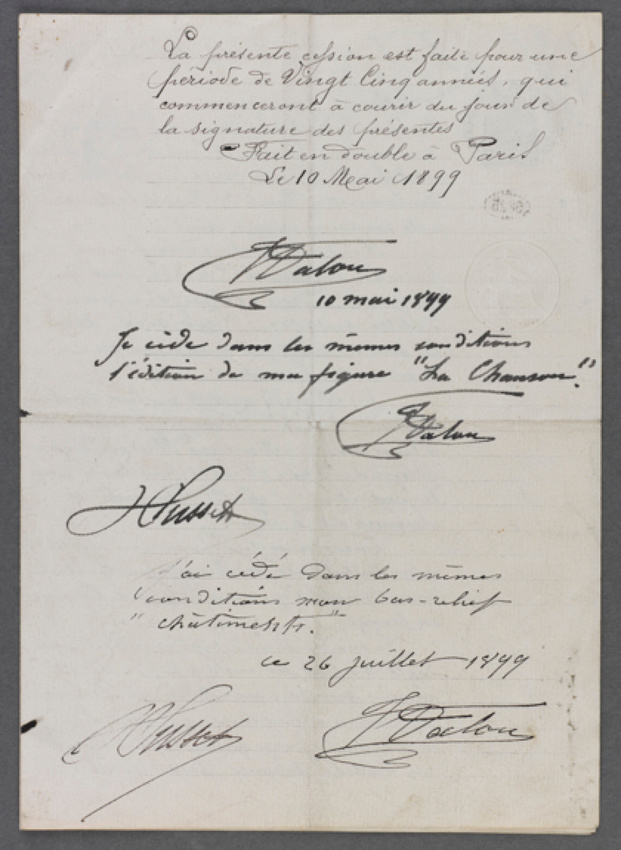 La présente cession est faite pour une
période de Vingt Cinq années, qui
commenceront à courir du jour de
la signature des présentes
Fait en double à Paris
Le 10 Mai 1899
JDalou
10 mai 1899
Je cède dans les mêmes conditions
l'édition de ma figure "La Chanson."
JDalou
HSusse
j'ai cédé dans les mêmes
conditions mon bas-relief
"châtiments."
ce 26 juillet 1899
Susse JDalou